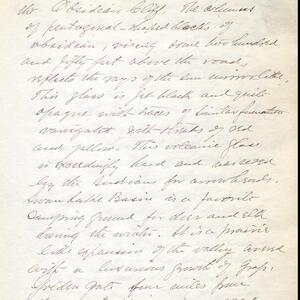 the Obsidian Cliff. The columns
of pentagonal-shaped blocks of
obsidian, rising some two hundred
and fifty feet above the road,
reflects the rays of the sun mirror like.
This glass is jet black and quite
opaque with traces of similar formation
variegated with streaks of red
and yellow. This volcanic glass
is exceedingly hard and was used
by the indians for arrowheads.
Swan Lake Basin is a favorite
camping ground for deer and elk
during the winter. It is a prairie
like expansion of the valley covered
with a luxurious growth of grass.
Golden Gate four miles from